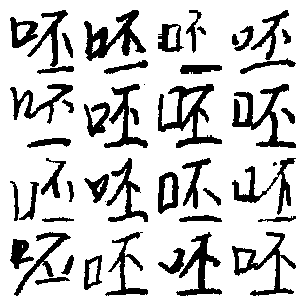 呸呸呸呸
呸呸呸呸
呸呸呸呸
呸呸呸呸